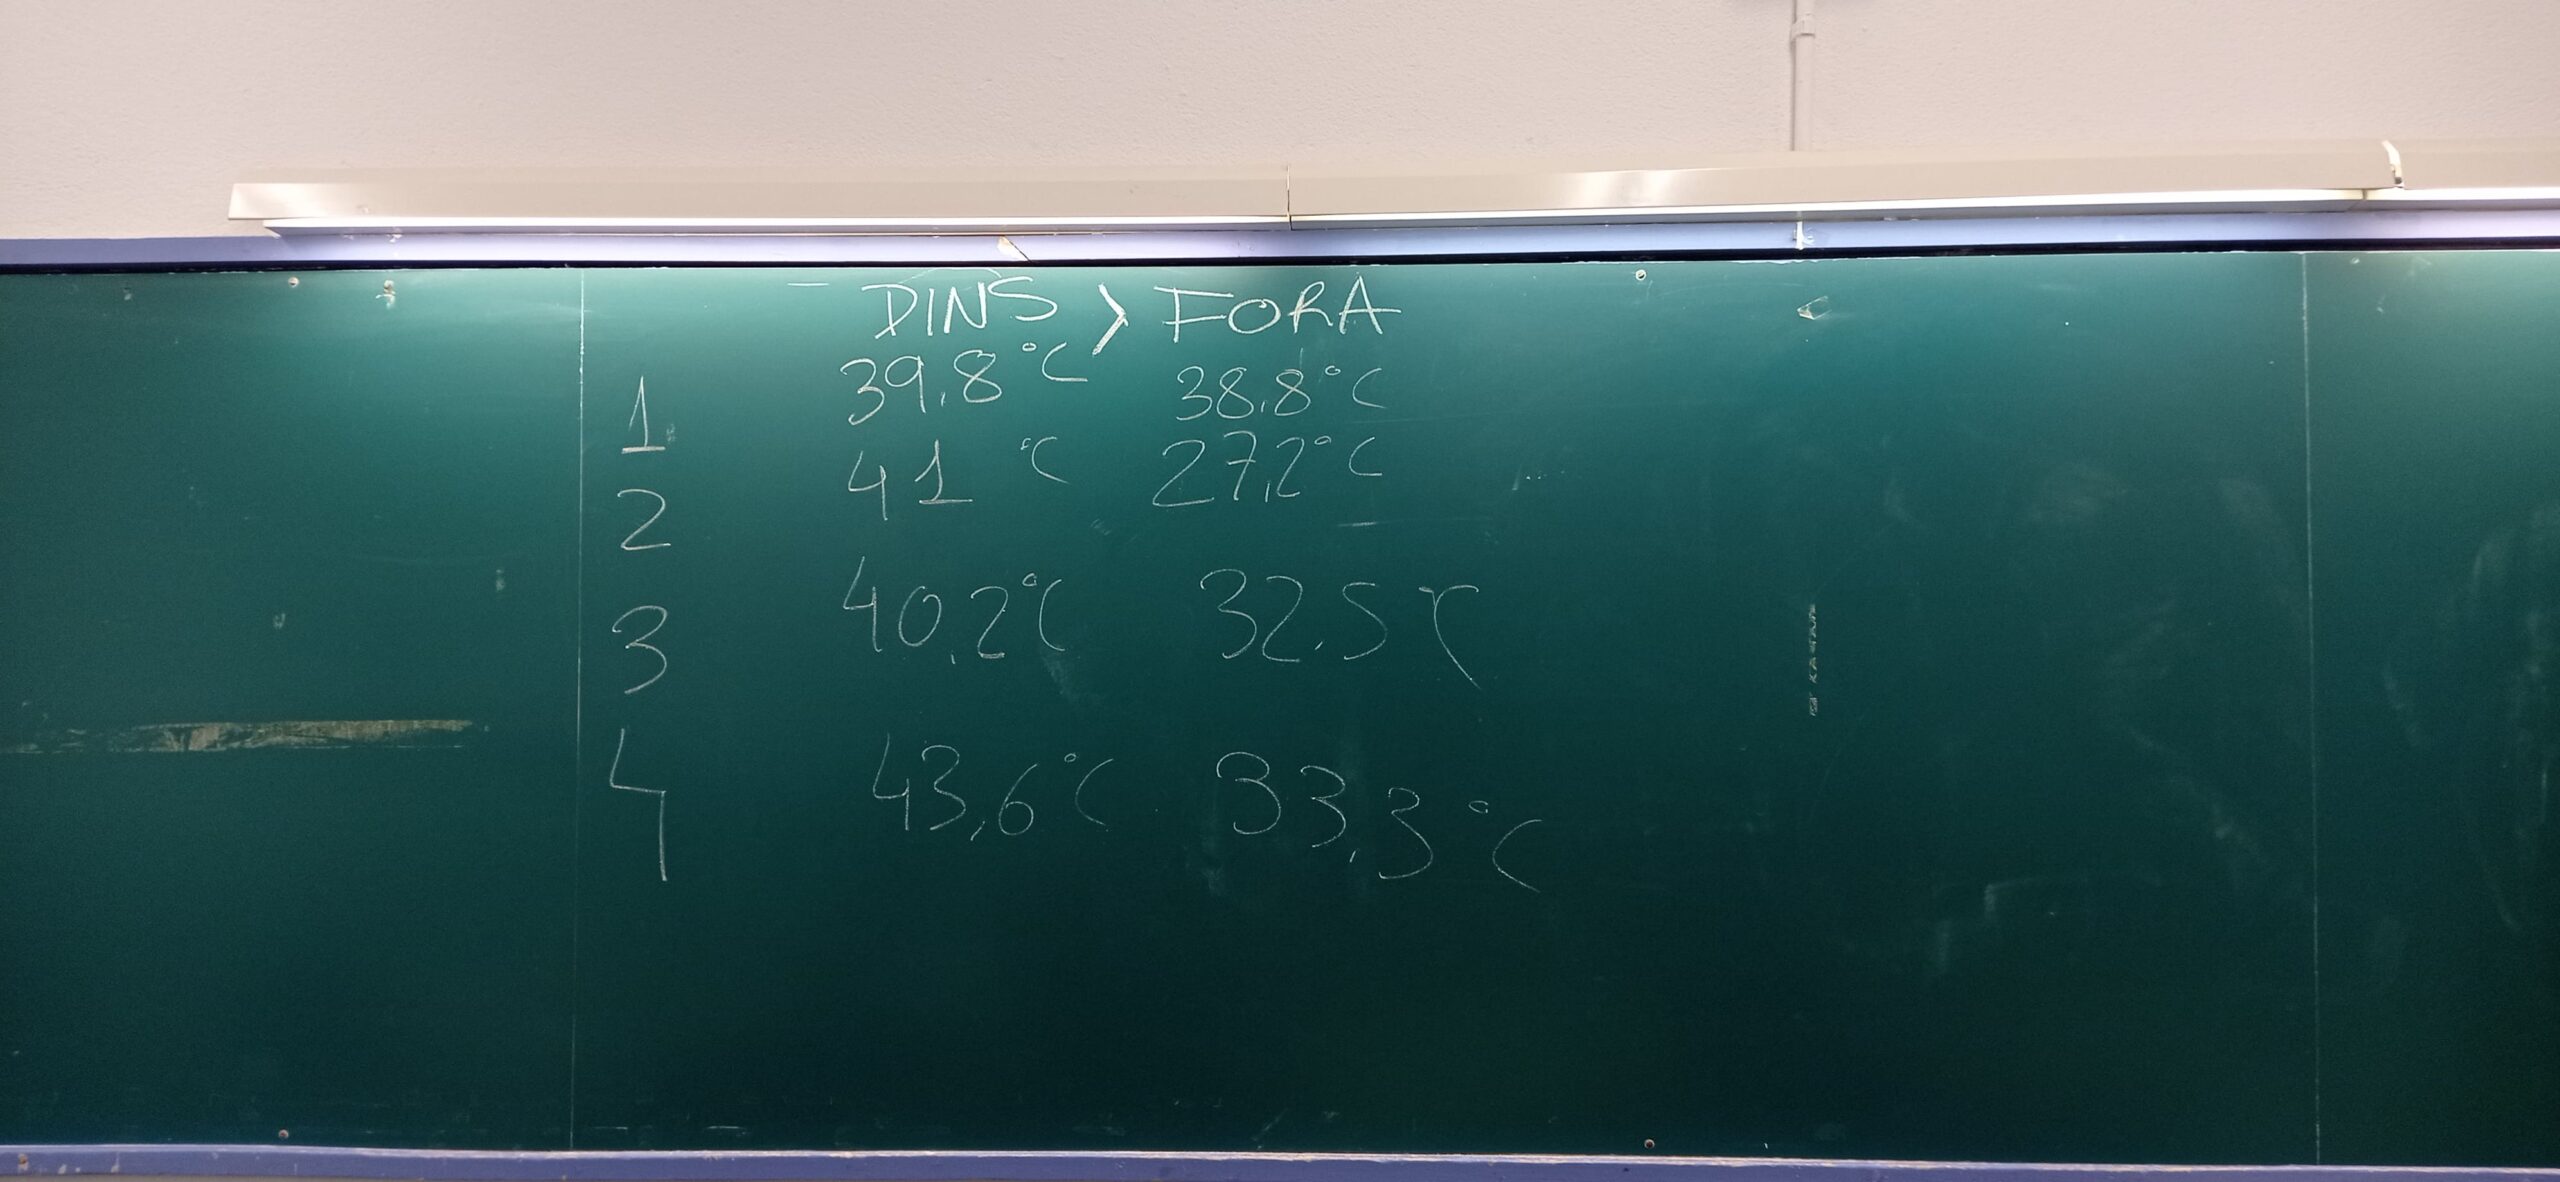 DINS > FORA
1 39,8°C 38,8°C
2 41 °C 27,2°C
3 40,2°C 32,5 °C
4 43,6°C 33,3°C